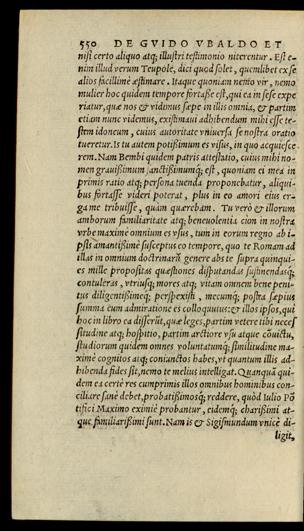 550 DE GVIDO VBALDO ET
nisi certo aliquo atq; illustri testimonio niterentur. Est e-
nim illud verum Teupole, dici quod solet, quemlibet ex se
alios facillimè æstimare. Itaque quoniam nemo vir, nemo
mulier hoc quidem tempore fortasse est, qui ea in sese expe
riatur, quæ nos & vidimus sæpe in illis omnia, & partim
etiam nunc videmus, existimaui adhibendum mihi esse te-
stem idoneum, cuius autoritate vniuersa se nostra oratio
tueretur. Is tu autem potissimum es visus, in quo acquiesce
rem. Nam Bembi quidem patris attestatio, cuius mihi no-
men grauissimum sanctissimumq; est, quoniam ei mea in
primis ratio atq; persona tuenda proponebatur, aliqui-
bus fortasse videri poterat, plus in eo amori eius er-
ga me tribuisse, quàm quærebam. Tu verò & illorum
amborum familiaritate atq; beneuolentia cùm in nostra
vrbe maximè omnium es vsus, tum in eorum regno ab i-
psis amantissimè susceptus eo tempore, quo te Romam ad
illas in omnium doctrinarũ genere abs te supra quinqui-
es mille propositas quæstiones disputandas sustinendasq;
contuleras, vtriusq; mores atq; vitam omnem bene peni-
tus diligentissimeq; perspexisti, mecumq; postea sæpius
summa cum admiratione es colloquutus: & illos ipsos, qui
hoc in libro ea disserũt, quæ leges, partim vetere tibi necess
situdine atq; hospitio, partim arctiore vsu atque cõuictu,
studiorum quidem omnes voluntatumq; similitudine ma-
ximè cognitos atq; coniunctos habes, vt quantum illis ad-
hibenda fides sit, nemo te melius intelligat. Quanquã qui-
dem ea certè res cumprimis illos omnibus hominibus con-
ciliare sanè debet, probatissimosq; reddere, quòd Iulio Põ
tifici Maximo eximiè probantur, eidemq; charissimi at-
que familiarissimi sunt. Nam is & Sigismundum vnicè di-
ligit,